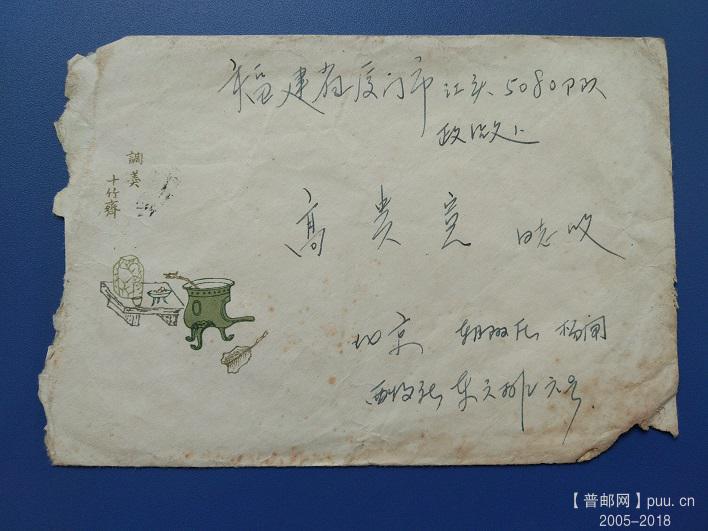 福建省厦门市江头5080部队
政治处
調羹
十竹齋
高贵
同志收
北京 朝阳区
东六排六号
【普邮网】puu.cn
2005-2018